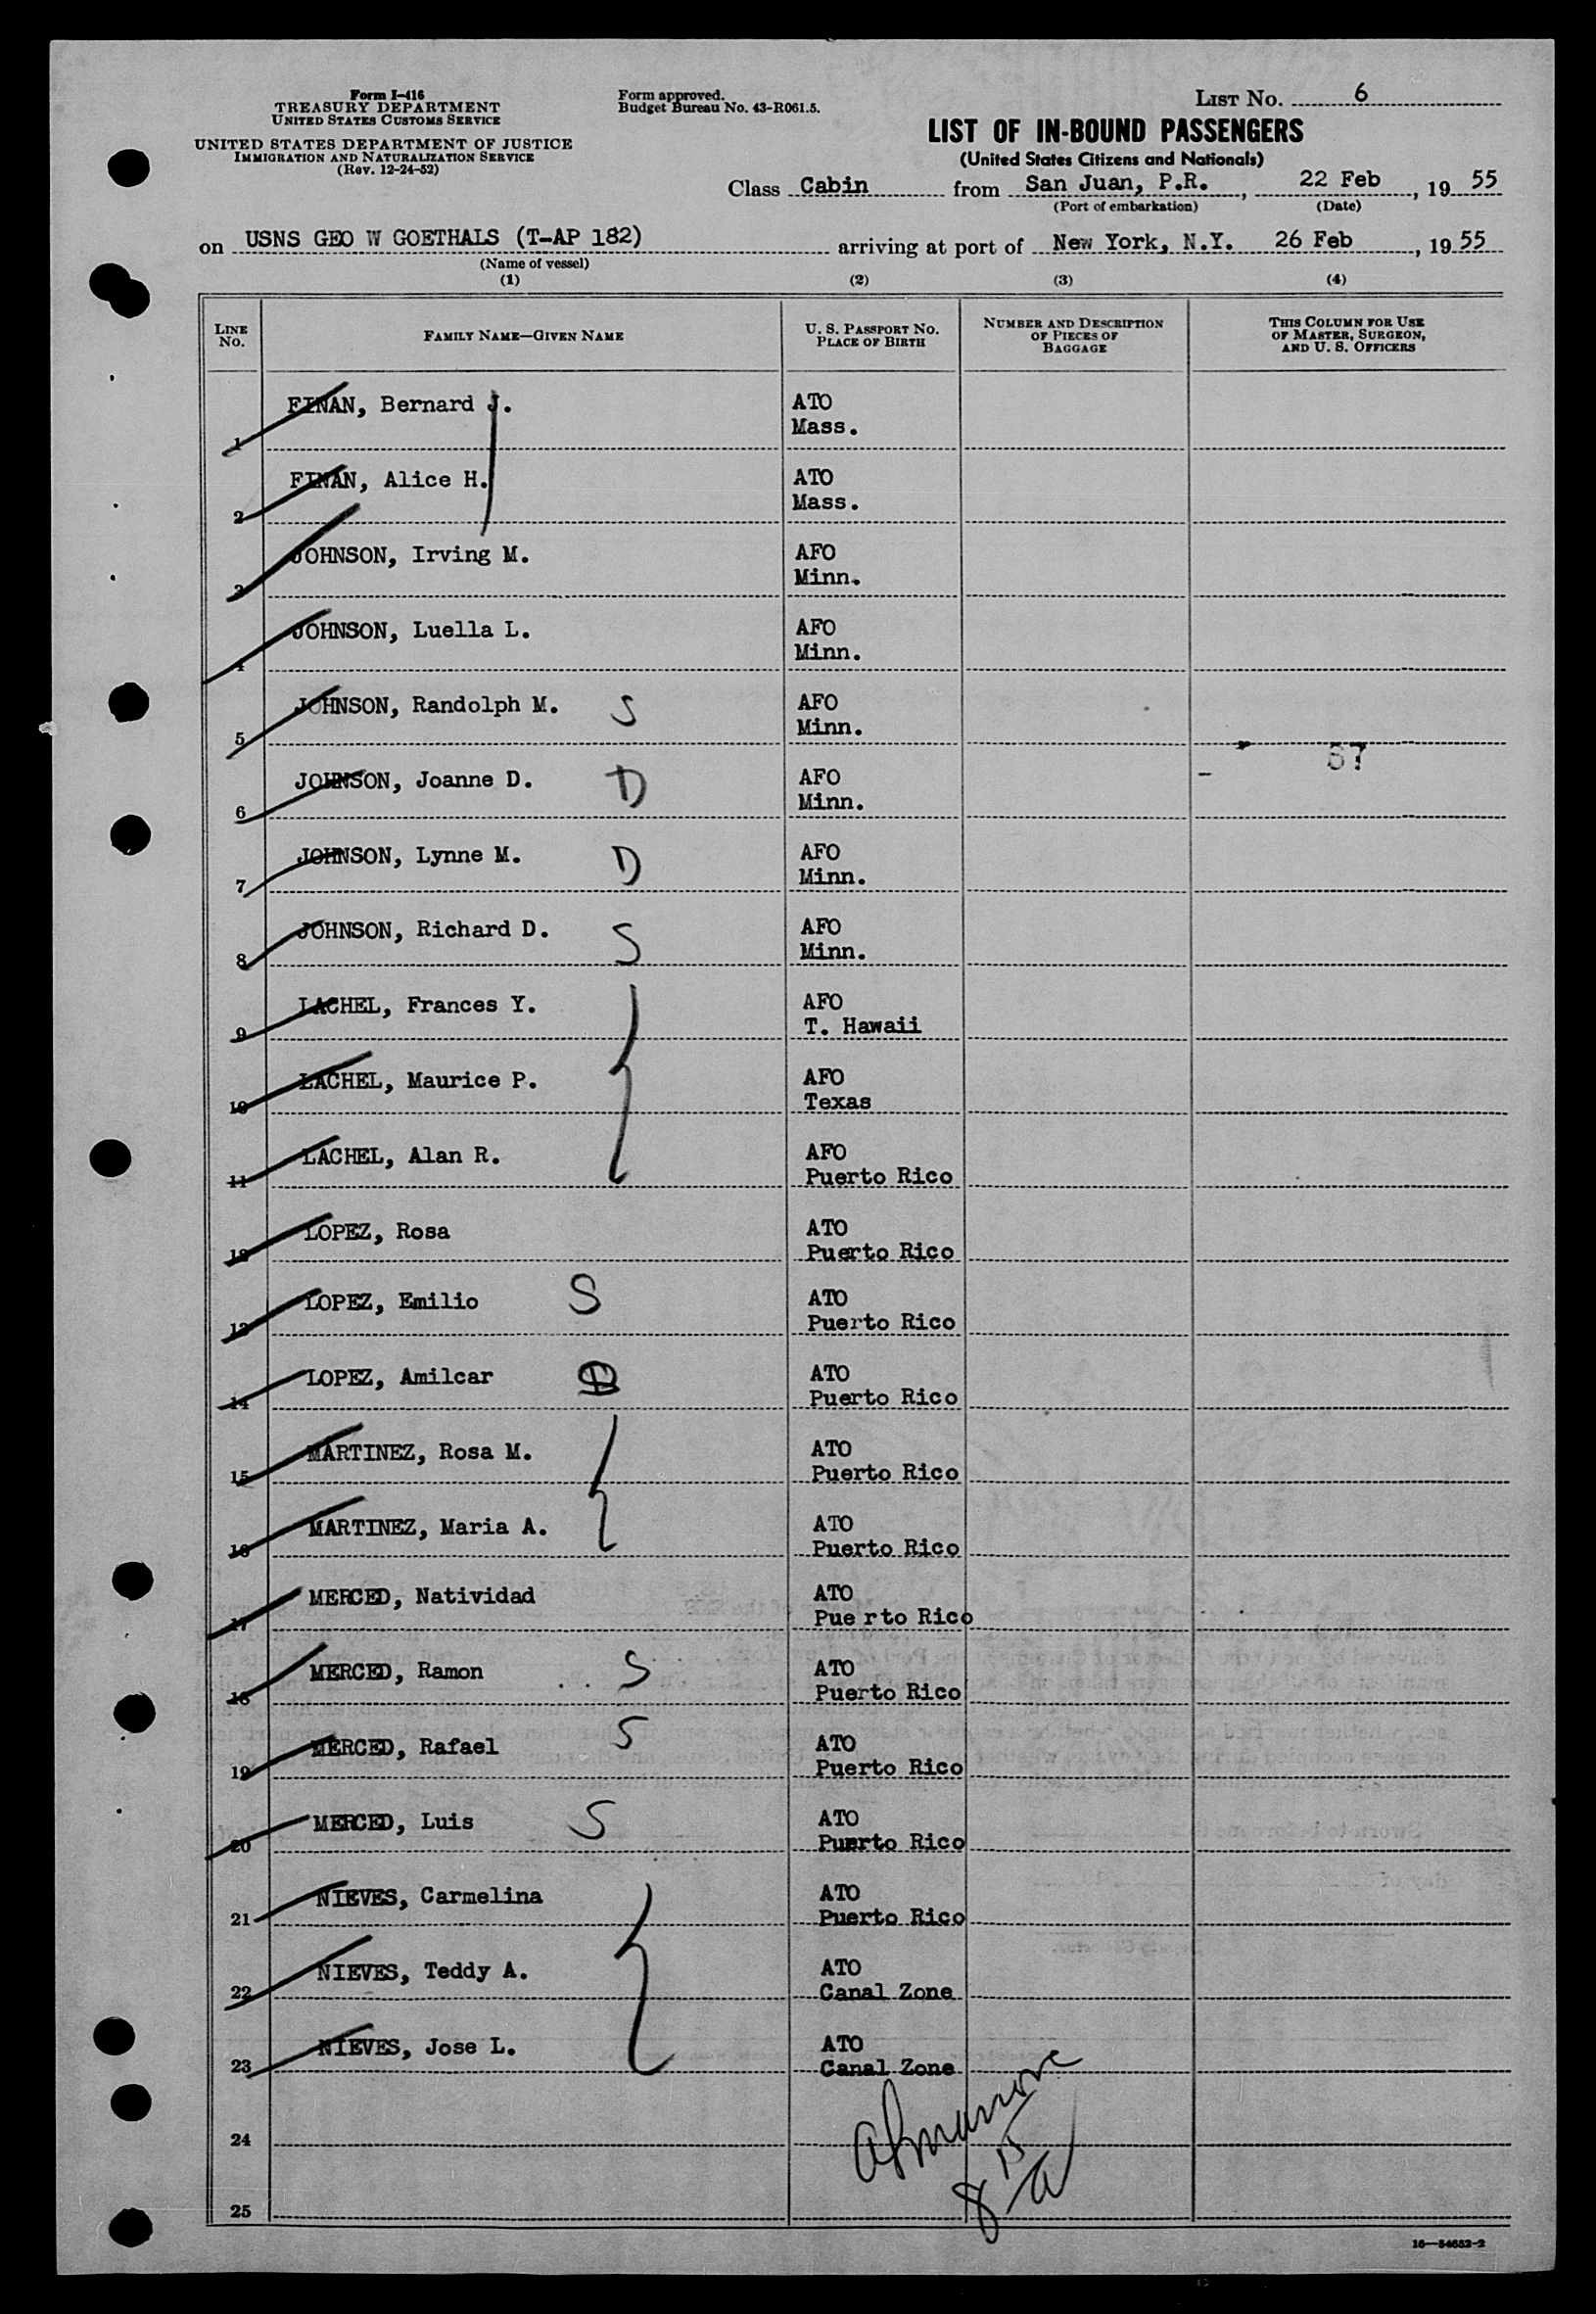 Form I-416
TREASURY DEPARTMENT
UNITED STATES CUSTOMS SERVICE
UNITED STATES DEPARTMENT OF JUSTICE
IMMIGRATION AND NATURALIZATION SERVICE
(Rev. 12-24-52)
Form approved.
Budget Bureau No. 43-R061.5.
LIST NO. 6
LIST OF IN-BOUND PASSENGERS
(United States Citizens and Nationals)
Class Cabin from San Juan, P.R., 22 Feb, 1955
(Port of embarkation) (Date)
on USNS GEO W GOETHALS (T-AP 182) arriving at port of New York, N.Y. 26 Feb, 1955
(Name of vessel)
(1) (2) (3) (4)
LINE NO. FAMILY NAME—GIVEN NAME U. S. PASSPORT NO. PLACE OF BIRTH NUMBER AND DESCRIPTION OF PIECES OF BAGGAGE THIS COLUMN FOR USE OF MASTER, SURGEON, AND U. S. OFFICERS
1 FINAN, Bernard J. ATO
Mass.
2 FINAN, Alice H. ATO
Mass.
3 JOHNSON, Irving M. AFO
Minn.
4 JOHNSON, Luella L. AFO
Minn.
5 JOHNSON, Randolph M. S AFO
Minn.
67
6 JOHNSON, Joanne D. D AFO
Minn.
7 JOHNSON, Lynne M. D AFO
Minn.
8 JOHNSON, Richard D. S AFO
Minn.
9 LACHEL, Frances Y. AFO
T. Hawaii
10 LACHEL, Maurice P. AFO
Texas
11 LACHEL, Alan R. AFO
Puerto Rico
12 LOPEZ, Rosa ATO
Puerto Rico
13 LOPEZ, Emilio S ATO
Puerto Rico
14 LOPEZ, Amilcar D ATO
Puerto Rico
15 MARTINEZ, Rosa M. ATO
Puerto Rico
16 MARTINEZ, Maria A. ATO
Puerto Rico
17 MERCED, Natividad ATO
Pue rto Rico
18 MERCED, Ramon S ATO
Puerto Rico
19 MERCED, Rafael S ATO
Puerto Rico
20 MERCED, Luis S ATO
Puerto Rico
21 NIEVES, Carmelina ATO
Puerto Rico
22 NIEVES, Teddy A. ATO
Canal Zone
23 NIEVES, Jose L. ATO
Canal Zone
24
25
16—54652-2